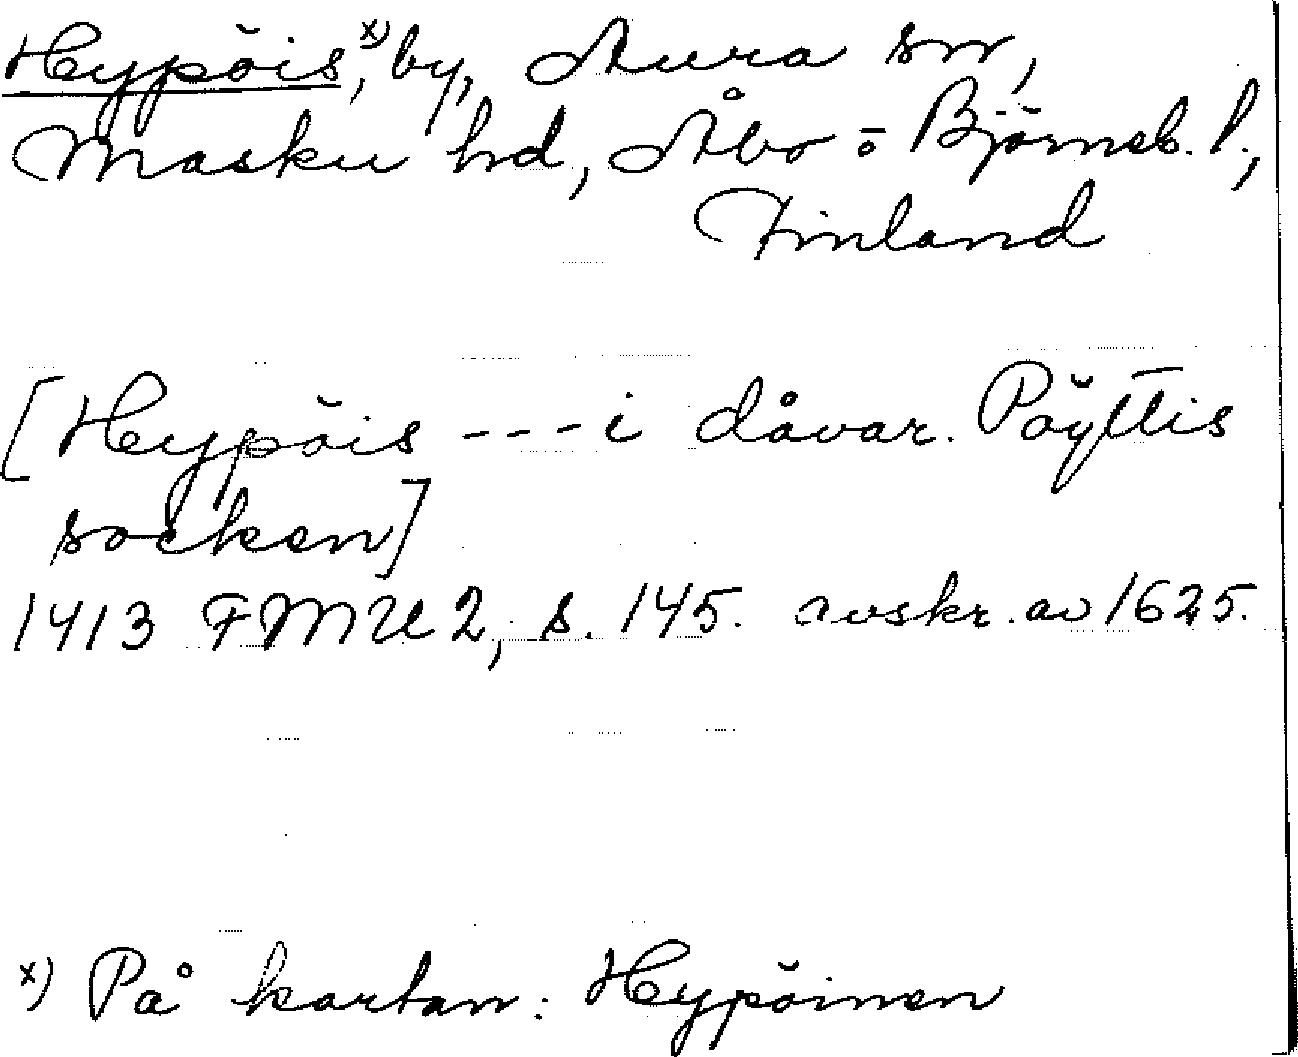 Hypöis,x) by, Aura sn,
Masku hd, Åbo = Björneb. l.,
Finland
[Hypöis --- i dåvar. Pöyttis
socken]
1413 FMU 2, s. 145. avskr. av 1625.
x) På kartan: Hypöinen